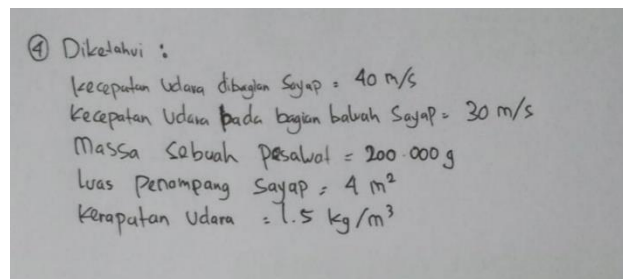 ④ Diketahui :
Kecepatan Udara dibagian Sayap = 40 m/s
Kecepatan Udara pada bagian bawah Sayap = 30 m/s
Massa Sebuah Pesawat = 200.000 g
Luas Penampang Sayap = 4 m²
Kerapatan Udara = 1.5 kg/m³